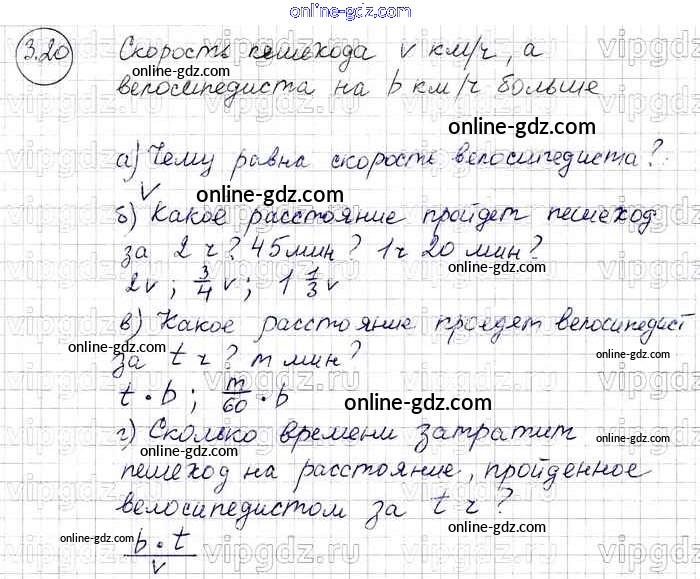 online-gdz.com
3.20 Скорость пешехода v км/ч, а
online-gdz.com
велосипедиста на b км/ч больше
online-gdz.com
а) Чему равна скорость велосипедиста?
v online-gdz.com
б) Какое расстояние пройдет пешеход
за 2 ч? 45 мин? 1 ч 20 мин?
online-gdz.com
2v; 3/4 v; 1 1/3 v
в) Какое расстояние проедет велосипедист
online-gdz.com online-gdz.com
за t ч? m мин?
t · b; m/60 · b
online-gdz.com
г) Сколько времени затратит
online-gdz.com
пешеход на расстояние, пройденное
велосипедистом за t ч?
online-gdz.com online-gdz.com
b · t / v
vipgdz.ru vipgdz.ru vipgdz.ru